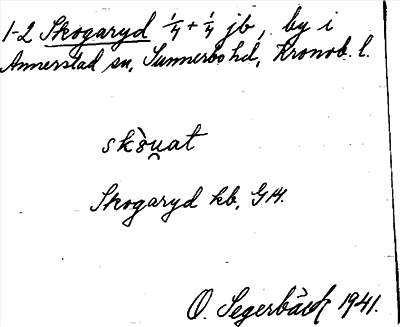 1-2 Skogaryd 1/4 + 1/4 jb, by i
Annerstad sn, Sunnerbo hd, Kronob. l.
skòu̯at
Skogaryd kb, GM.
O. Segerbäck 1941.